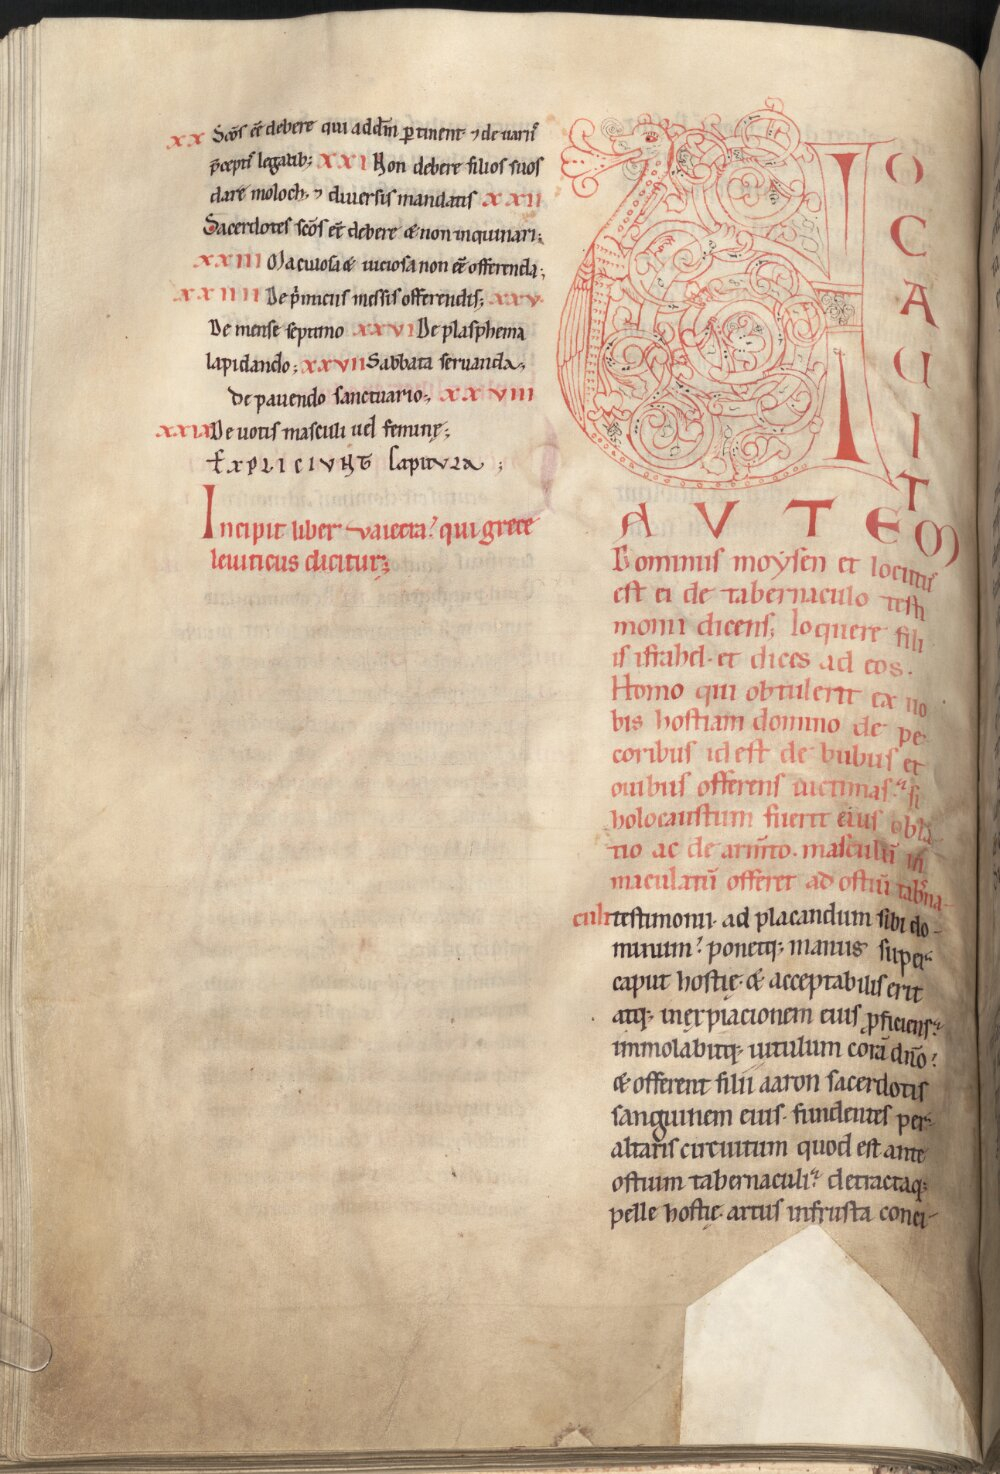 xx Scōs eē debere qui addm̄ ꝑtinent ⁊ de uariis
p̄ceptis legalib; xxi Non debere filios suos
dare moloch, ⁊ diuersis mandatis xxii
Sacerdotes scōs eē debere & non inquinari;
xxiii Maculosa & uiciosa non eē offerenda;
xxiiii De p̄miciis messis offerendis; xxv
De mense septimo xxvi De plasphema
lapidando; xxvii Sabbata seruanda,
de pauendo sanctuario, xxviii
xxix De uotis masculi uel feminę;
EXPLICIUNT Capitula;
Incipit liber vaiecra? qui grece
leuiticus dicitur;
VOCAUIT
AUTEM
Dominus moysen et locutus
est ei de tabernaculo testi
monii dicens; loquere fili
is israhel. et dices ad eos.
Homo qui obtulerit ex uo
bis hostiam domino de pe
coribus id est de bubus et
ouibus offerens uictimas? si
holocaustum fuerit eius obla
tio ac de armto. masculū in
maculatū offeret ad ostiū tab̄na
culi testimonii. ad placandum sibi do-
minum? ponetq; manus super
caput hostię. & acceptabilis erit
atq; in expiacionem eius ꝓficiens?
immolabitq; uitulum corā dn̄o?
& offerent filii aaron sacerdotis
sanguinem eius. fundentes per
altaris circuitum quod est ante
ostium tabernaculi? detractaq;
pelle hostię. artus in frusta conci-